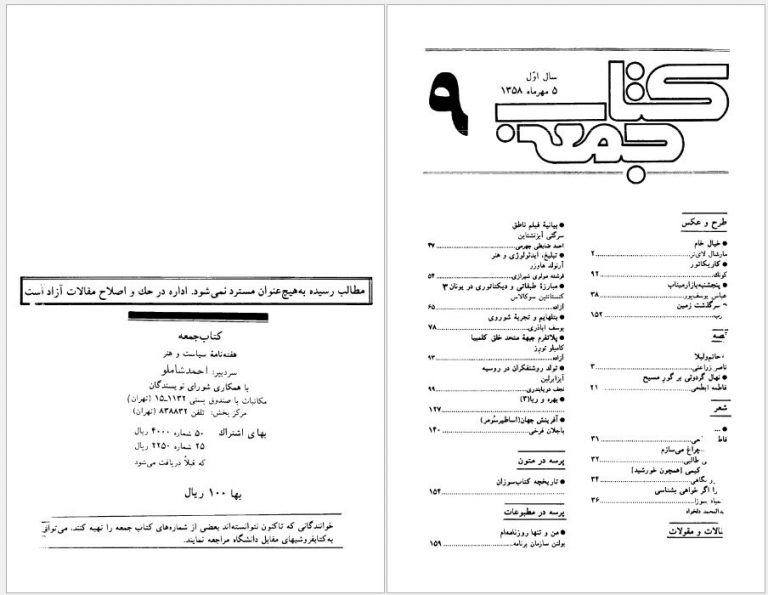 کتاب جمعه
سال اوّل
۵ مهرماه ۱۳۵۸
۹
طرح و عکس
● خیال خام
مارشال لای‌تر ۲
● کاریکاتور
کوپک ۹۲
● پنجشنبه‌بازار میناب
عباس یوسف‌پور ۳۸
سرگذشت زمین
۱۵۲
قصه
خانم‌ولیلا
ناصر زراعتی ۳
● نهال گردوئی بر گور مسیح
فاطمه ابطحی ۲۱
شعر
● ...
۳۱
چراغ می‌سازم
۳۲
[همچون خورشید]
۳۴
را اگر خواهی بشناسی
۳۶
مقالات و مقولات
● بیانیهٔ فیلم ناطق
سرگئی آیزنشتاین
احمد ضابطی جهرمی ۴۷
● تبلیغ، ایدئولوژی و هنر
آرنولد هاوزر
فرشته مولوی شیرازی ۵۴
● مبارزهٔ طبقاتی و دیکتاتوری در یونان ۳
کنستانتین سوکالاس
آزاده ۶۵
● بتلهایم و تجربهٔ شوروی
یوسف اباذری ۷۸
● پلاتفرم جبههٔ متحد خلق کلمبیا
کامیلو تورز
آزاده ۹۳
● تولد روشنفکران در روسیه
آیزابرلین
نجف دریابندری ۹۹
● بهره و ربا(۳)
۱۲۷
● آفرینش جهان(اساطیرسُومر)
باجلان فرخی ۱۴۰
پرسه در متون
● تاریخچه کتاب‌سوزان
۱۵۴
پرسه در مطبوعات
● من و تنها روزنامه‌ام
بولتن سازمان برنامه ۱۵۹
مطالب رسیده به‌هیچ‌عنوان مسترد نمی‌شود. اداره در حك و اصلاح مقالات آزاد است
کتاب جمعه
هفته‌نامهٔ سیاست و هنر
سردبیر: احمد شاملو
با همکاری شورای نویسندگان
مکاتبات با صندوق پستی ۱۱۳۲-۱۵ (تهران)
مرکز پخش: تلفن ۸۳۸۸۳۲ (تهران)
بهای اشتراك ۵۰ شماره ۴۰۰۰ ریال
۲۵ شماره ۲۲۵۰ ریال
که قبلاً دریافت می‌شود
بها ۱۰۰ ریال
خوانندگانی که تاکنون نتوانسته‌اند بعضی از شماره‌های کتاب جمعه را تهیه کنند، می‌توانند
به‌کتابفروشیهای مقابل دانشگاه مراجعه نمایند.